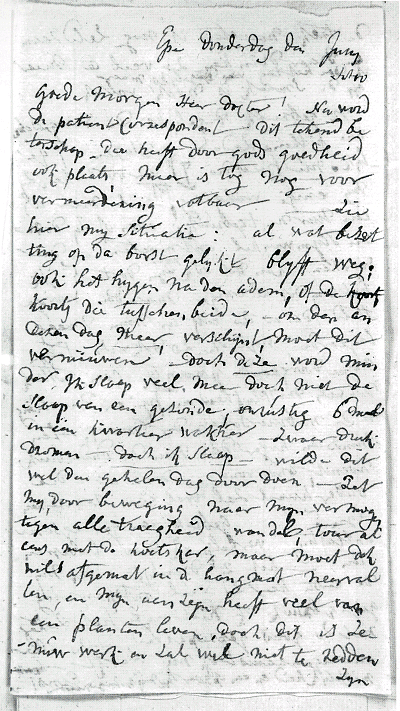 Donderdag den Juny
goede Morgen Heer docter! Nu word
de patient Correspondent Dit tekend be
terschap. Dee heeft door gods goedheid
ook plaats maar is tog nog voor
vermindering vatbaar Zie
hier myn Situatie: al wat bezet
ting op da borst gelykt blyft weg,
ook het hygen na den adem, of de koorts
koorts die tusschen beide, om den an
deren dag, meer, verschynt moet dit
vernieuwen doch dize word min
der, Ik Slaap veel, mee doch niet de
Slaap van een gezonde, onrustig 6 maal
in een kwartier wakker zwaar druk
dromen doch ik Slaap wilde dit
wel den gehelen dag door doen Zet
my door beweging naar myn vermogen
tegen alle traegheid wandel, tour al
eens met de koets kar, maar moet dik
wils afgemat in d hangmat neerval
len, en myn aenzyn heeft veel van
een planten leven, doch dit is ze
nuw werk en zal wel niet te redden
zyn